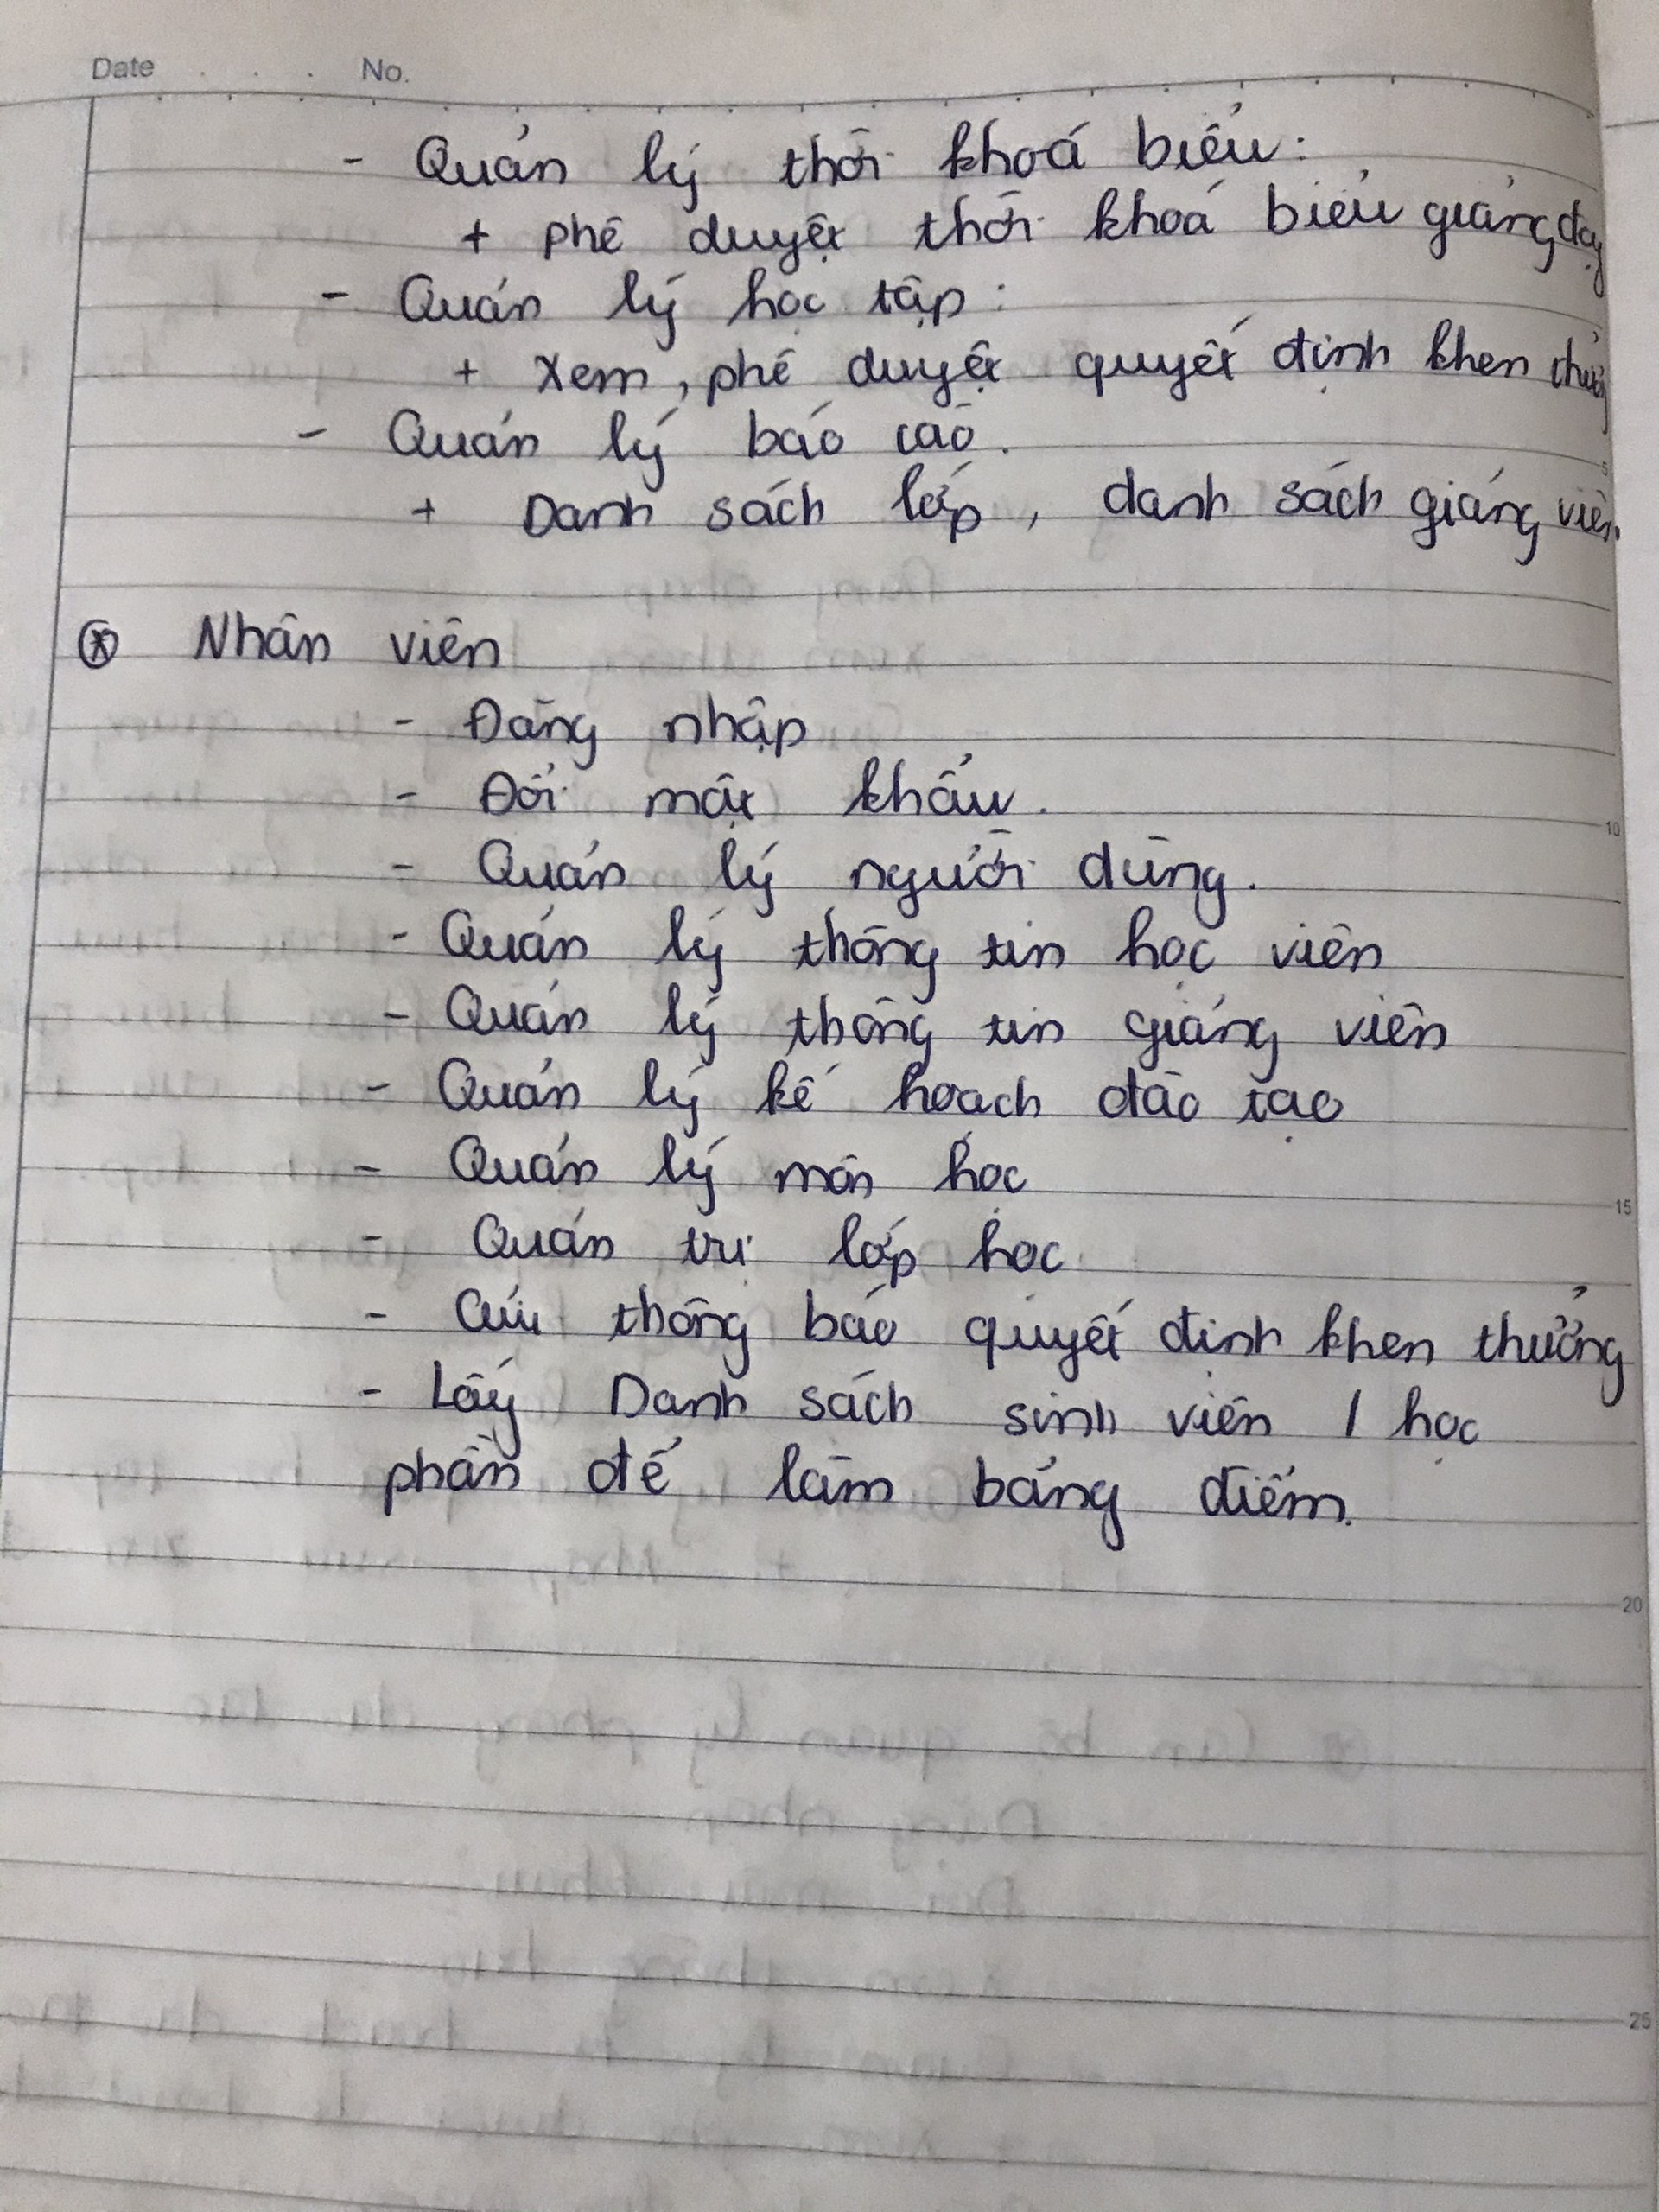 Date No.
- Quản lý thời khoá biểu:
+ phê duyệt thời khoá biểu giảng dạy
- Quản lý học tập:
+ Xem, phê duyệt quyết định khen thưởng
- Quản lý báo cáo.
+ Danh sách lớp, danh sách giảng viên.
5
⊛ Nhân viên
- Đăng nhập
- Đổi mật khẩu.
10
- Quản lý người dùng.
- Quản lý thông tin học viên
- Quản lý thông tin giảng viên
- Quản lý kế hoạch đào tạo
- Quản lý môn học
15
- Quản trị lớp học
- Gửi thông báo quyết định khen thưởng
- Lấy Danh sách sinh viên 1 học
phần để làm bảng điểm.
20
25